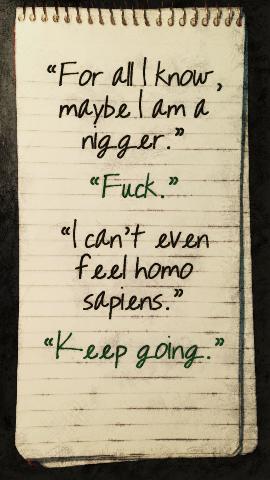 “For all I know,
maybe I am a
nigger.”
“Fuck.”
“I can't even
feel homo
sapiens.”
“Keep going.”